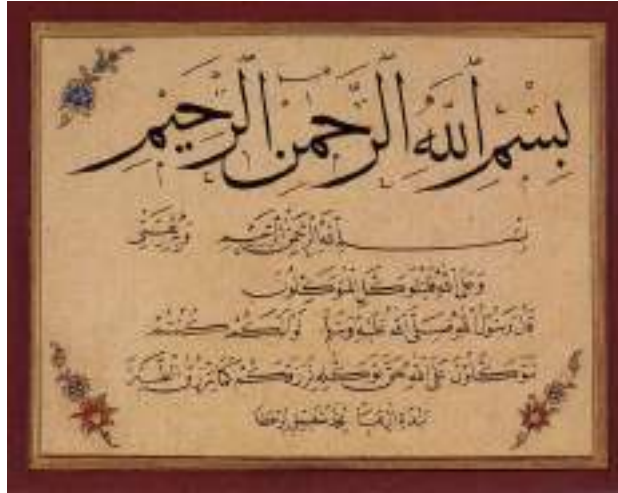 بِسْمِ اللَّهِ الرَّحْمٰنِ الرَّحِيمِ
بسم الله الرحمن الرحيم وبه ثقتي
وعلى الله فليتوكل المتوكلون
قال رسول الله صلى الله عليه وسلم لو أنكم كنتم
تتوكلون على الله حق توكله لرزقكم كما يرزق الطير